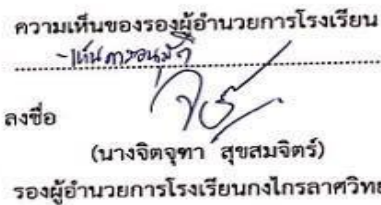 ความเห็นของรองผู้อำนวยการโรงเรียน
- เห็นควรอนุมัติ
ลงชื่อ
(นางจิตจุฑา สุขสมจิตร์)
รองผู้อำนวยการโรงเรียนกงไกรลาศวิทย